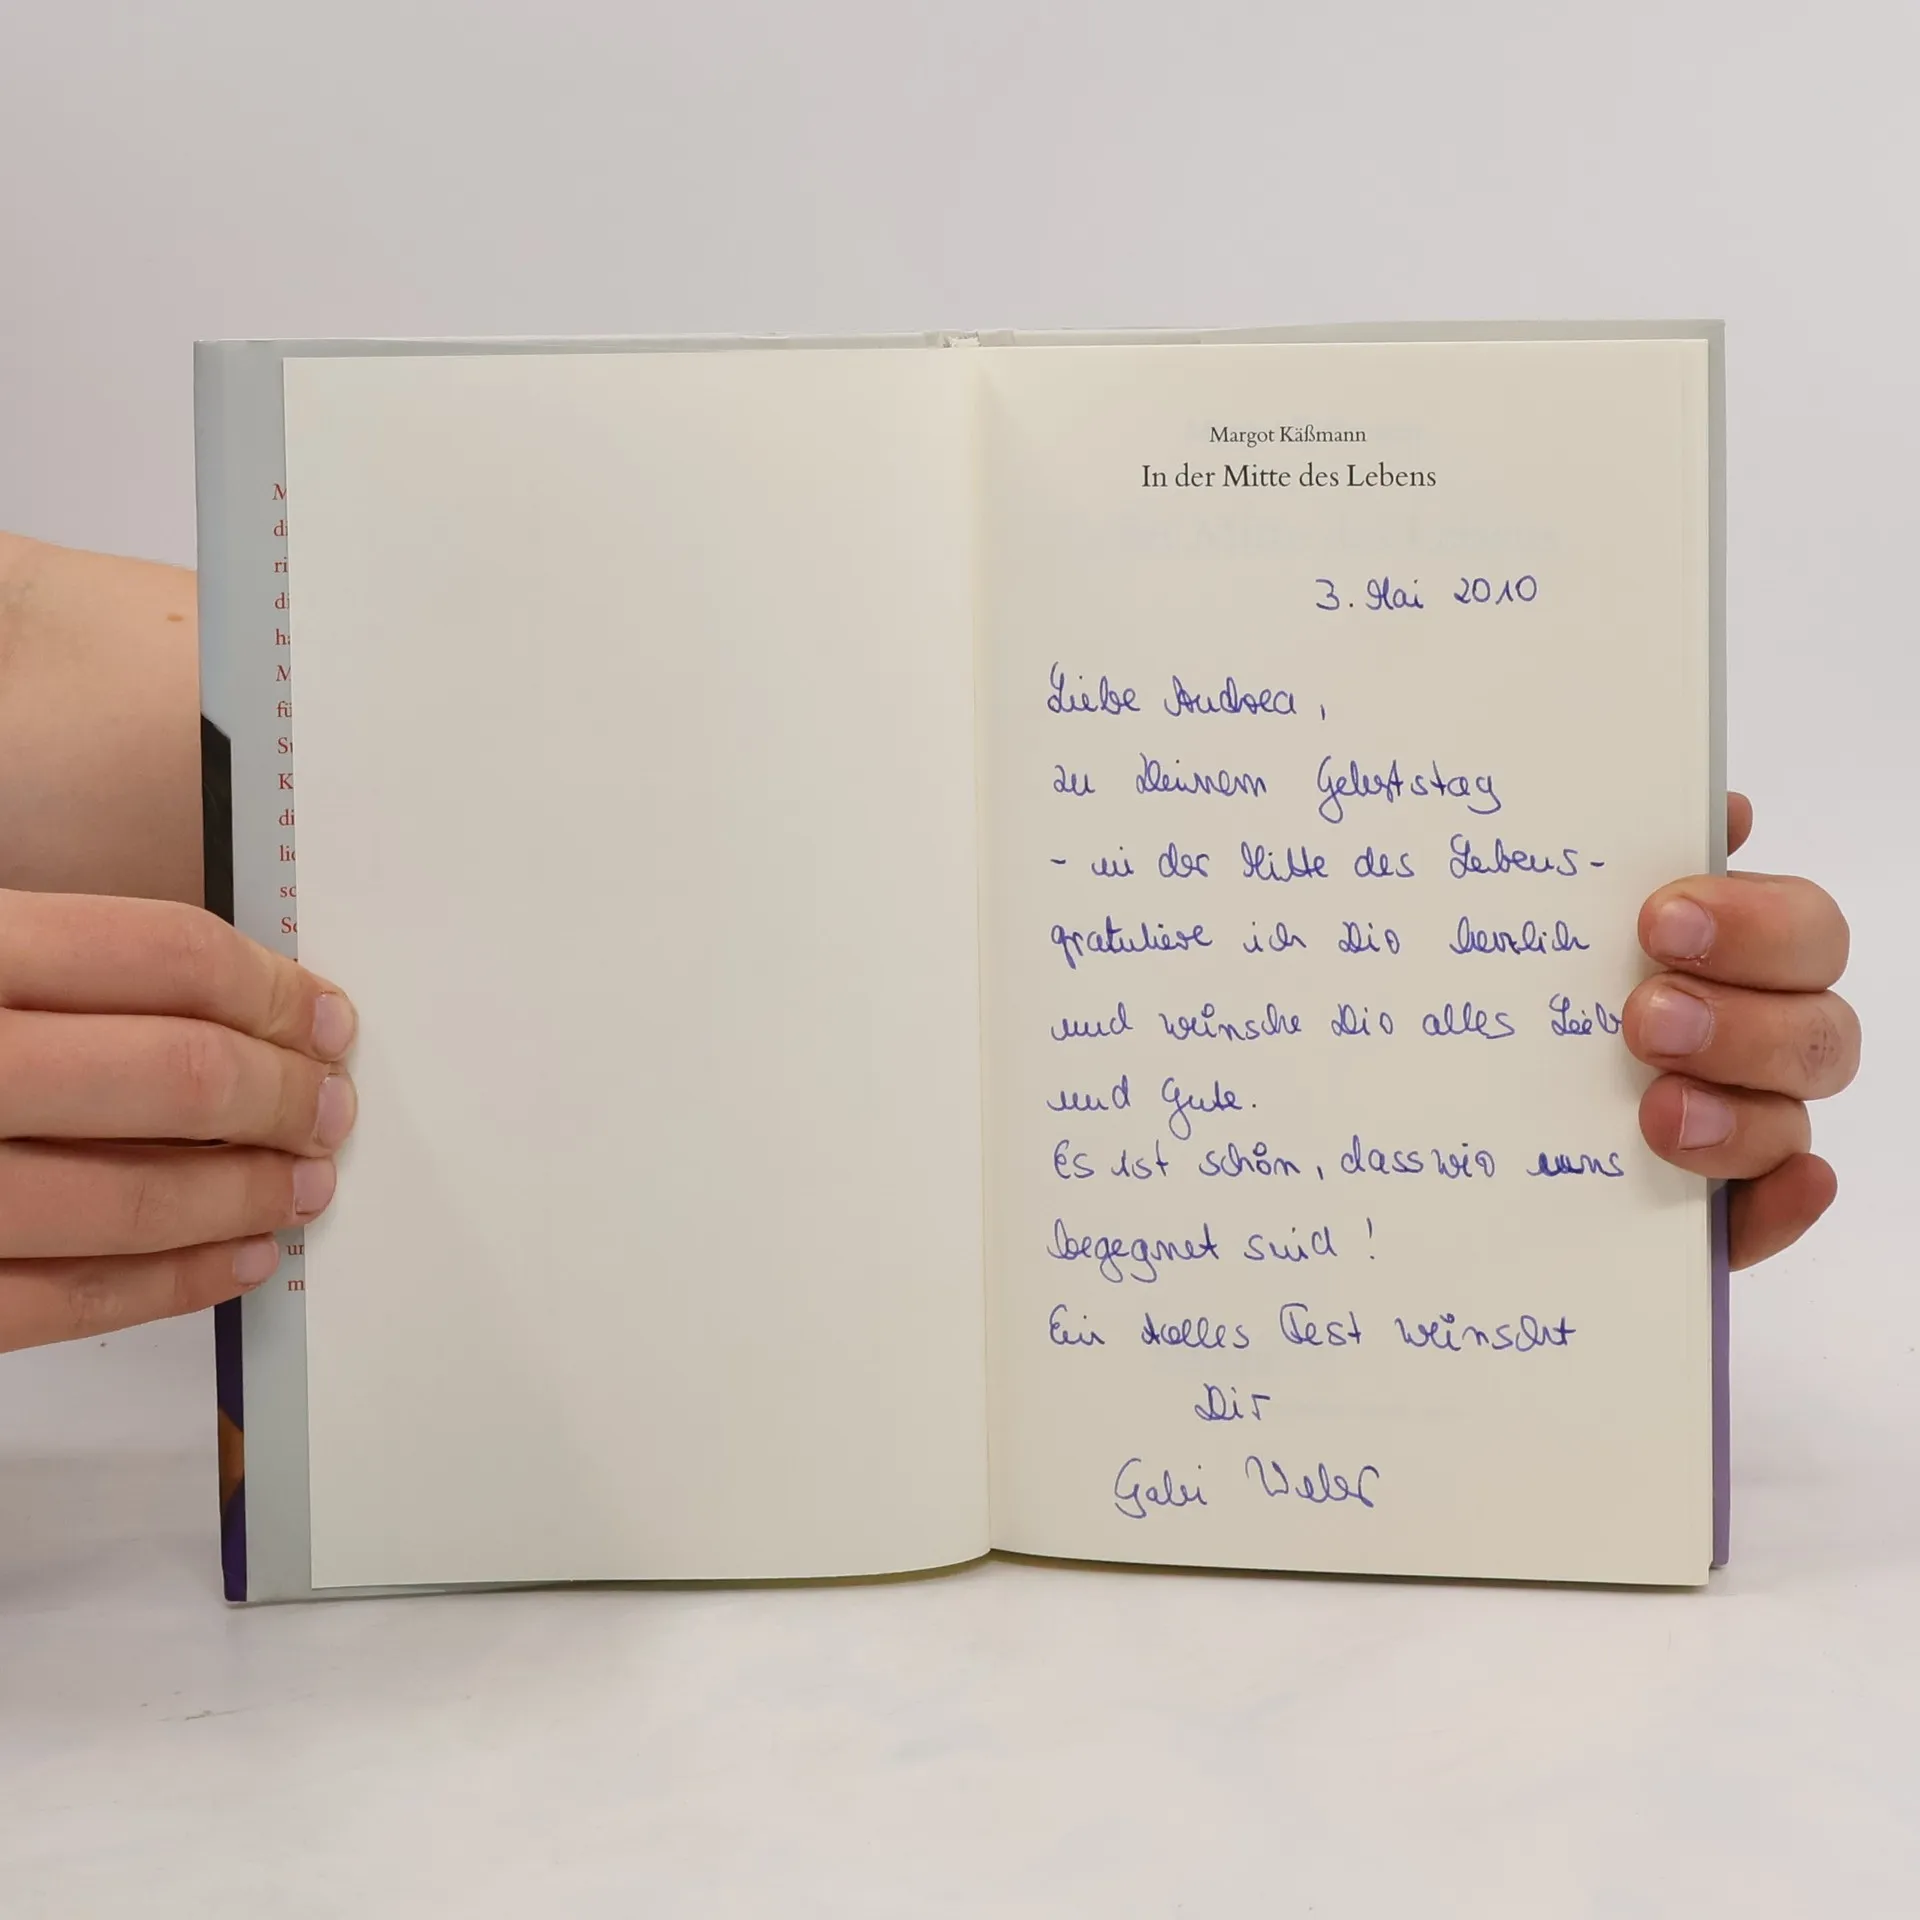 M
di
ri
di
ha
M
fü
Su
K
di
lic
sc
Se
un
m
Margot Käßmann
In der Mitte des Lebens
3. Mai 2010
Liebe Andrea,
zu Deinem Geburtstag
- in der Mitte des Lebens -
gratuliere ich Dir herzlich
und wünsche Dir alles Lieb
und Gute.
Es ist schön, dass wir uns
begegnet sind!
Ein tolles Fest wünscht
Dir
Gabi Weber